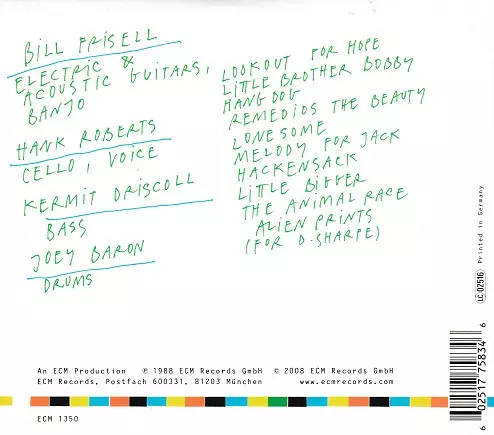 BILL FRISELL
ELECTRIC &
ACOUSTIC GUITARS,
BANJO
HANK ROBERTS
CELLO, VOICE
KERMIT DRISCOLL
BASS
JOEY BARON
DRUMS
LOOKOUT FOR HOPE
LITTLE BROTHER BOBBY
HANGDOG
REMEDIOS THE BEAUTY
LONESOME
MELODY FOR JACK
HACKENSACK
LITTLE BIGGER
THE ANIMAL RACE
ALIEN PRINTS
(FOR D. SHARPE)
LC 02516 Printed in Germany
An ECM Production ℗ 1988 ECM Records GmbH © 2008 ECM Records GmbH
ECM Records, Postfach 600331, 81203 München www.ecmrecords.com
ECM 1350
6 02517 75834 6